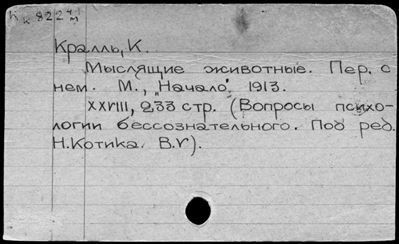 Кралль, К.
Мыслящие животные. Пер. с
нем. М., "Начало", 1913.
XXVIII, 233 стр. (Вопросы психо-
логии бессознательного. Под ред.
Н.Котика. В.V).